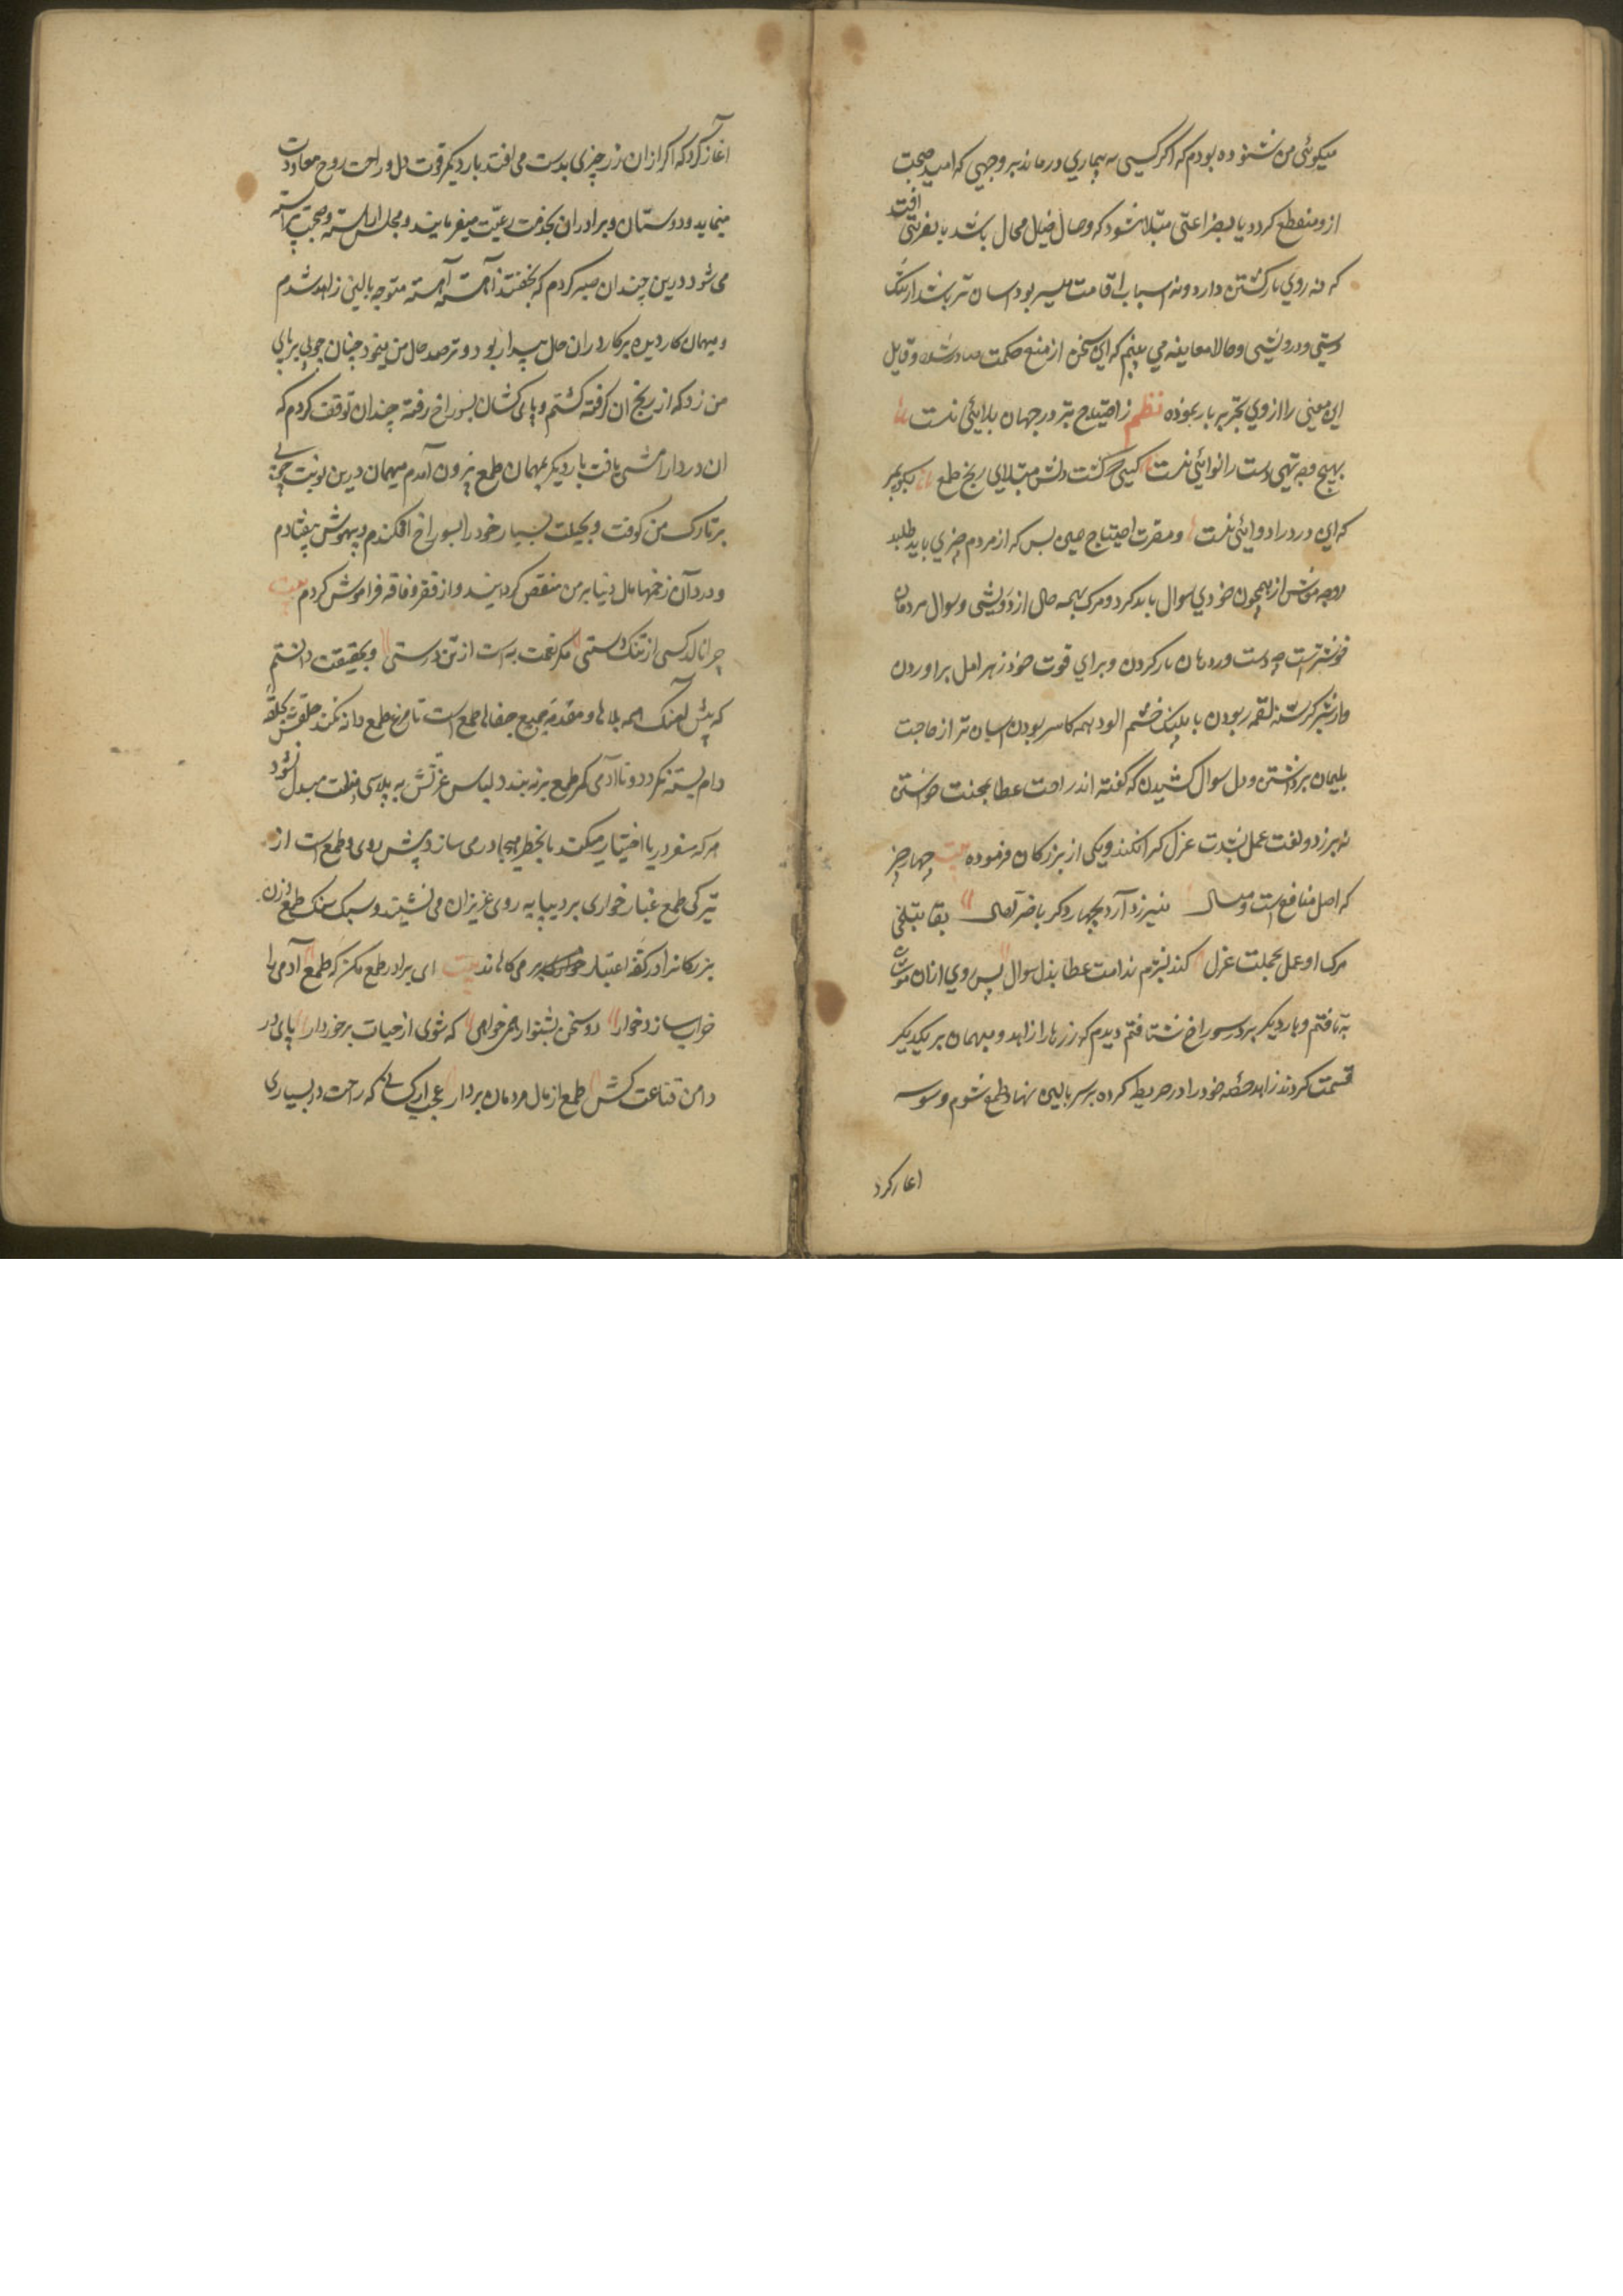 میکوئی من شنوده بودم که اکر کسی به بیماری درماند بر وجهی که امید صحبت
ازو منقطع کردد یا بفراعتی مبتلا شود که وصال خیل محال باشد یا بغربتی افتد
که نه روی بازکشتن دارد و نه اسباب اقامت میسر بود اسان تر باشد از تنک
دستی و درویشی و حالا معاینه می بینم که این سخن از منبع حکمت صادر شده و قایل
این معنی را از روی تجربه بار نموده نظم ز احتیاج بتر در جهان بلایئی نست
بهیچ وجه تهی دست را نوائی نست کسی که کشت دلش مبتلای رنج طمع بکو بمیر
که این درد را دوائی نست و مضرت احتیاج همین بس که از مردم چیزی باید طلبید
و وجه معاش از همچون خودی سوال باید کرد و مرک بهمه حال از درویشی و سوال مردمان
خوشترست چه دست در دهان مار کردن و برای قوت خود زهر امل براوردن
و از شیر کرسنه لقمه ربودن با پلنک خشم الود همه کاسه بودن اسان تر از حاجت
بلیمان برداشتن و دل سوال کشیدن که کفته اند راحت عطا بمحنت خواستن
نه ارزد و لغت عمل بشدت عزل کرا نکند و یکی از بزرکان فرموده بیت چهار چیز
که اصل منافع است و منال نیرزد آرد بچهار دکر باخر آمال بقا بتلخی
مرک او عمل بخجلت عزل کند بشرم ندامت عطا بذل سوال پس روی ازان موش
بتافتم و بار دیکر بر در سوراخ شتافتم دیدم که زرها را زاهد و میهمان بر یکدیکر
قسمت کردند زاهد حصه خود را در خریطه کرده بر سر بالین نهاد طمع شوم وسوسه
اغاز کرد
آغاز کرد که اکر ازان زر چیزی بدست می افتد بار دیکر قوت دل و راحت روح معاودت
مینماید و دوستان و برادران بخدمت رعیت میفرمایند و مجلس اراسته و صحبت پیراسته
می شود درین چندان صبر کردم که بخفتند آهسته آهسته متوجه بالین زاهد شدم
و میهمان کار دیده بر کار دران حال بیدار بود و ترصد حال من مینمود چنان چوبی بر پای
من زد که از رنج ان کرفته کشتم و پای کشان بسوراخ رفته چندان توقف کردم که
ان درد ارامشی یافت بار دیکر بهمان طمع بیرون آمدم میهمان درین نوبت چوبی
بر تارک من کوفت و بحیلت بسیار خود را بسوراخ افکندم و بیهوش بیفتادم
و درد آن زخمها مال دنیا بر من منغص کردانید و از فقر و فاقه فراموش کردم بیت
چرا نالد کسی از تنک دستی که نعمت به است از تن درستی و بحقیقت دانستم
که پیش آهنک همه بلاها و مقدمه جمیع جفاها طمع است تا مرغ طمع دانه نکند حلقش بحلقه
دام بسته نکردد و تا آدمی کمر طمع بر نه بندد لباس عزتش به پلاسی مذلت مبدل نشود
هر که سفر دریا اختیار میکند یا بخطرها مبادرت می سازد پیش روی وطمع است از
تیرکی طمع غبار خواری بر دیباچه روی عزیزان می نشیند و سبک سنک طمع وزن
بزرکانرا در کفه اعتبار می کاهاند بیت ای برادر طمع مکن که طمع آدمی را
خوار سازد و خوار دو سخن بشنو ار همی خواهی که شوی از حیات برخوردار پای در
دامن قناعت کش طمع از مال مردمان بردار عجب ارکسانی که راحت در بسیاری